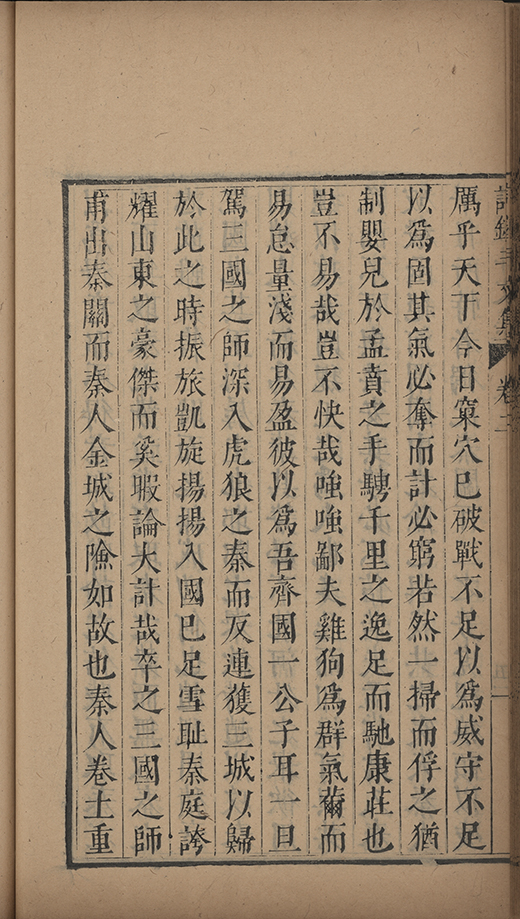 厲乎天下今日窠穴已破戰不足以爲威守不足
以爲固其氣必奪而計必窮若然一掃而俘之猶
制嬰兒於孟賁之手騁千里之逸足而馳康莊也
豈不易哉豈不快哉嗤嗤鄙夫雞狗爲群氣薾而
易怠量淺而易盈彼以爲吾齊國一公子耳一旦
駕三國之師深入虎狼之秦而反連獲三城以歸
於此之時振旅凱旋揚揚入國已足雪耻秦庭誇
耀山東之豪傑而奚暇論大計哉卒之三國之師
甫出秦關而秦人金城之險如故也秦人卷土重